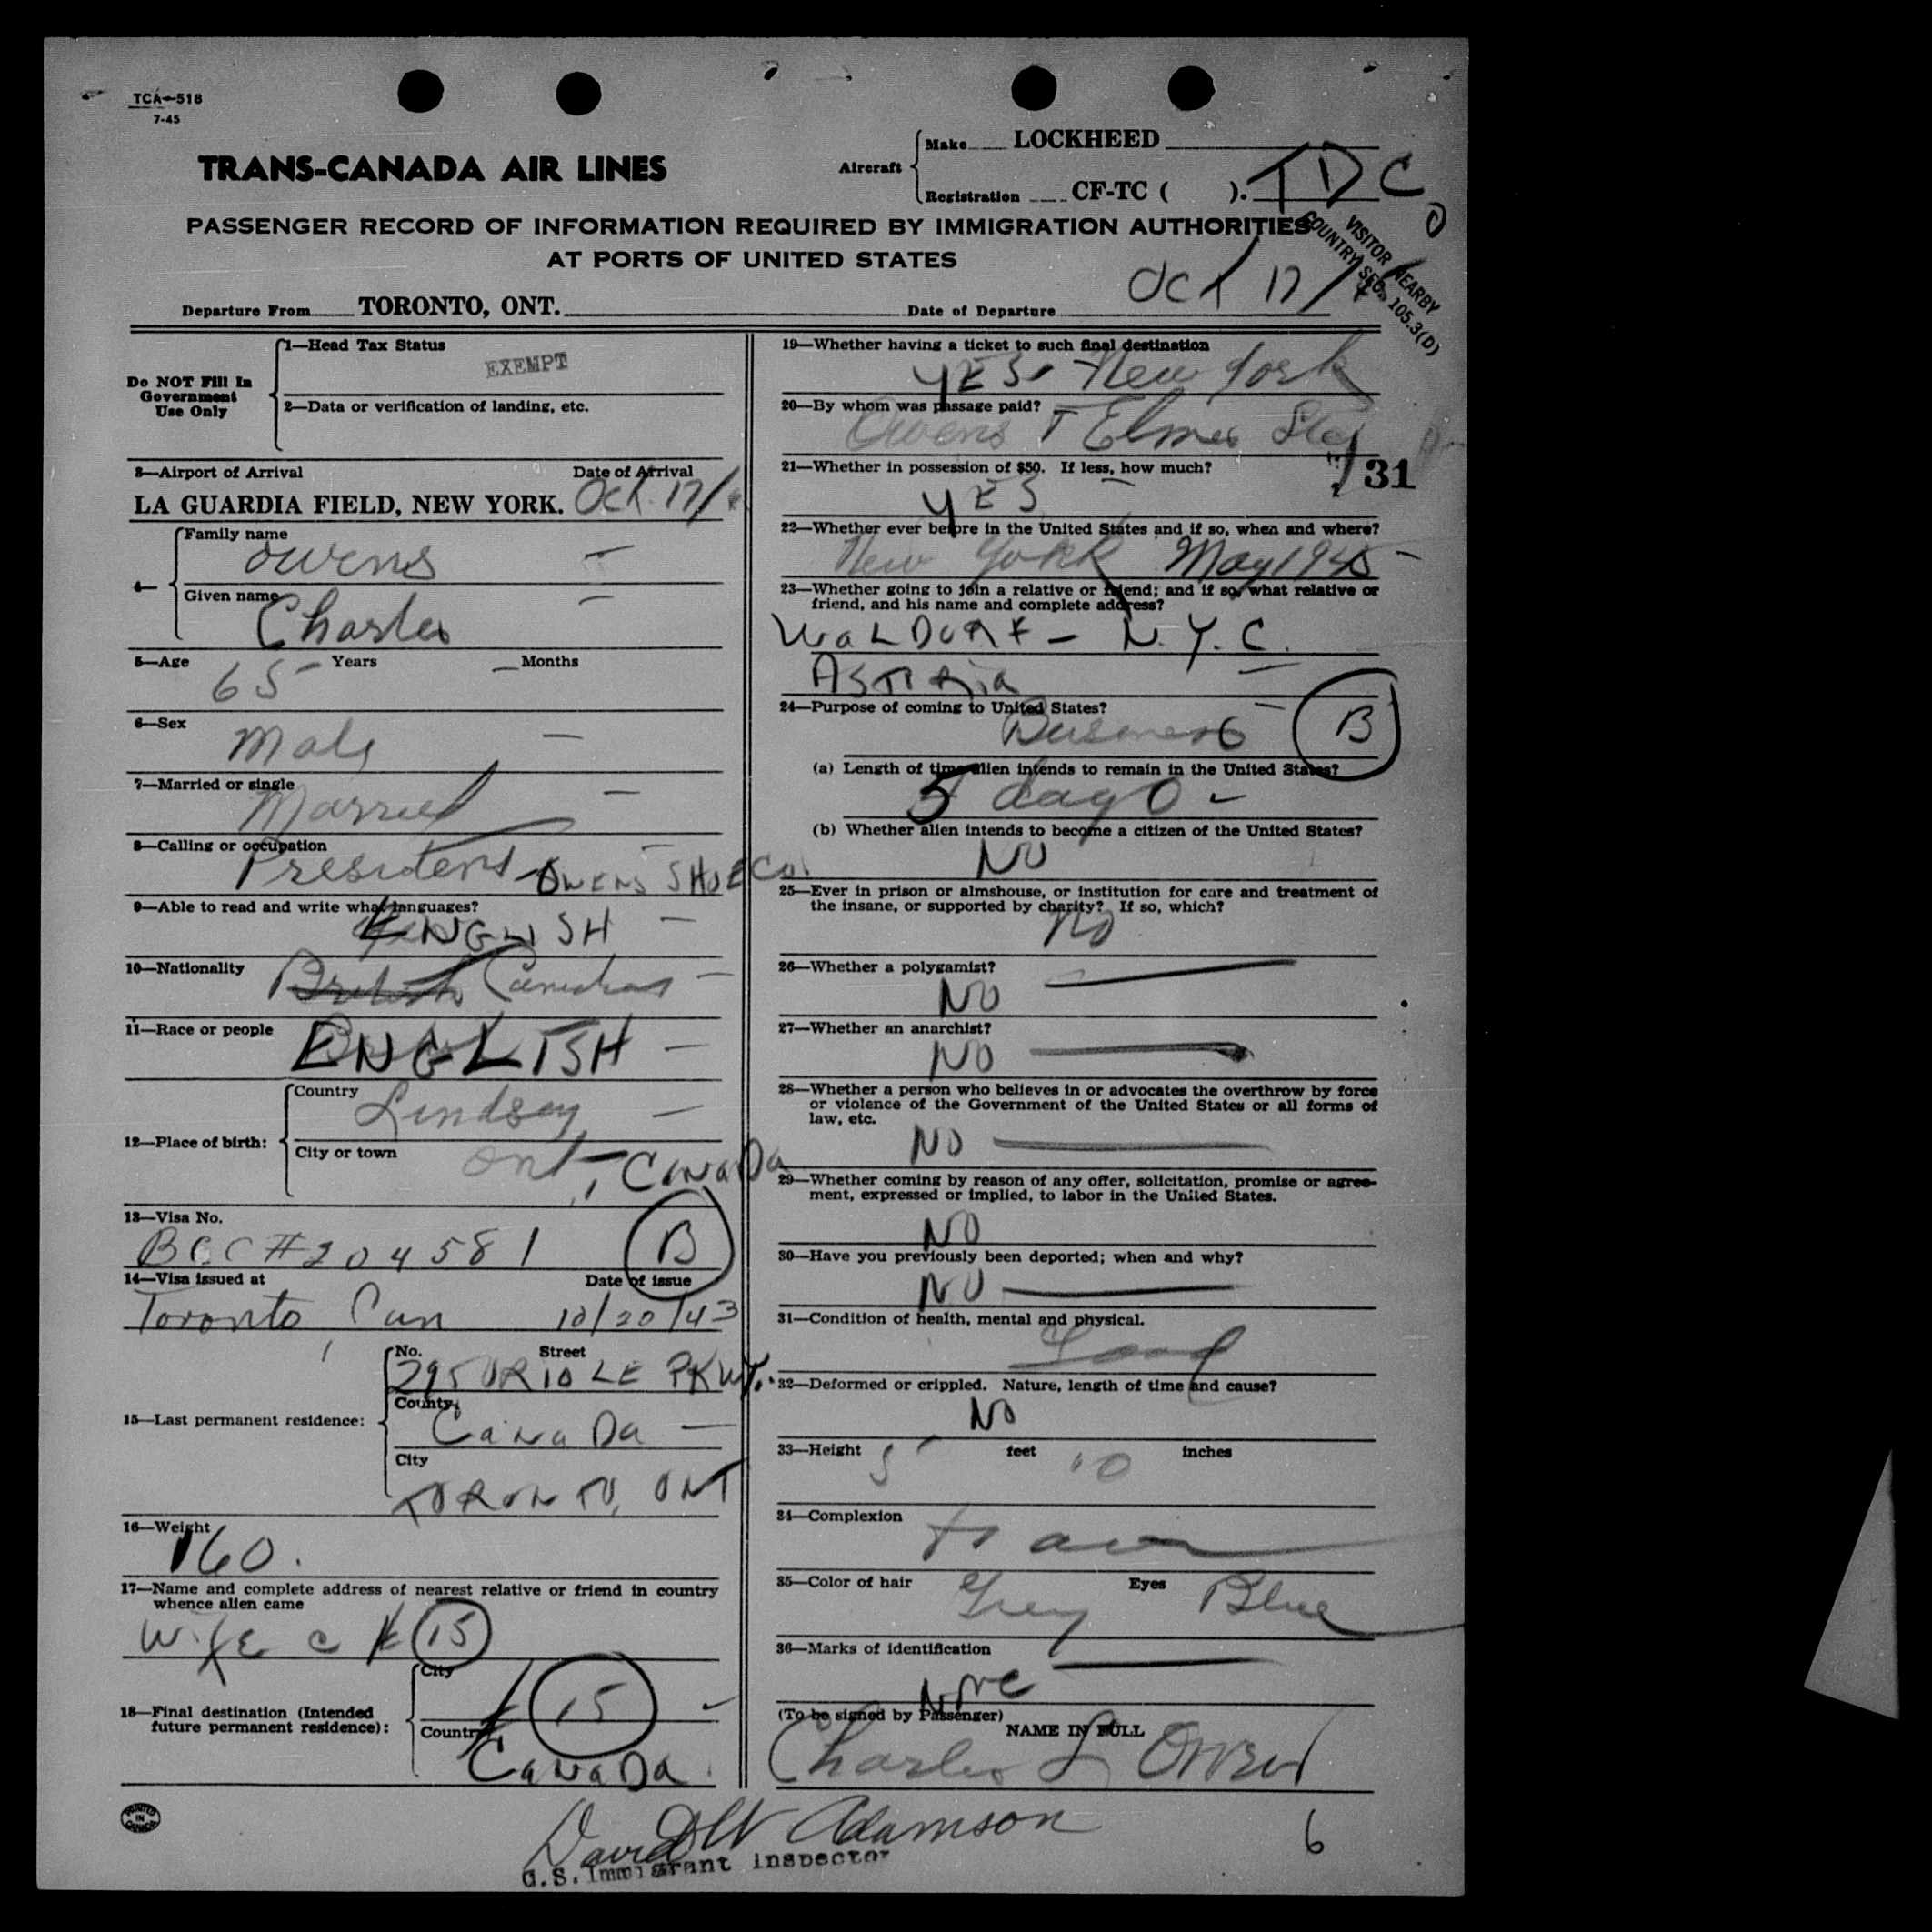 TCA—518
7-45
TRANS-CANADA AIR LINES
Aircraft
Make LOCKHEED
Registration CF-TC ( ). TDC
PASSENGER RECORD OF INFORMATION REQUIRED BY IMMIGRATION AUTHORITIES
AT PORTS OF UNITED STATES
VISITOR NEARBY
COUNTRY SEC. 105.3(D)
Departure From TORONTO, ONT. Date of Departure Oct 17/
Do NOT Fill In
Government
Use Only
1—Head Tax Status
EXEMPT
2—Data or verification of landing, etc.
3—Airport of Arrival Date of Arrival
LA GUARDIA FIELD, NEW YORK. Oct. 17/
4—
Family name
Owens
Given name
Charles
5—Age 65 Years — Months
6—Sex
Male
7—Married or single
Married
8—Calling or occupation
President - OWENS SHOE Co.
9—Able to read and write what languages?
ENGLISH
10—Nationality
British Canadian
11—Race or people
ENGLISH
12—Place of birth:
Country
Lindsay
City or town
Ont, CANADa
13—Visa No.
BCC #204581 B
14—Visa issued at Date of issue
Toronto, Can 10/20/43
15—Last permanent residence:
No. Street
295 ORIOLE PKWY.
County
CaNaDa
City
TORONTO, ONT
16—Weight
160.
17—Name and complete address of nearest relative or friend in country
whence alien came
Wife c 15
18—Final destination (Intended
future permanent residence):
City
15
Country
CaNaDa
19—Whether having a ticket to such final destination
YES. New York
20—By whom was passage paid?
Owens Elmer
21—Whether in possession of $50. If less, how much?
31
YES
22—Whether ever before in the United States and if so, when and where?
New York May 1945
23—Whether going to join a relative or friend; and if so, what relative or
friend, and his name and complete address?
WaLDORF — N.Y.C.
ASTORia
24—Purpose of coming to United States?
Business B
(a) Length of time alien intends to remain in the United States?
5 days
(b) Whether alien intends to become a citizen of the United States?
NO
25—Ever in prison or almshouse, or institution for care and treatment of
the insane, or supported by charity? If so, which?
No
26—Whether a polygamist?
NO
27—Whether an anarchist?
NO
28—Whether a person who believes in or advocates the overthrow by force
or violence of the Government of the United States or all forms of
law, etc.
NO
29—Whether coming by reason of any offer, solicitation, promise or agree-
ment, expressed or implied, to labor in the United States.
NO
30—Have you previously been deported; when and why?
NO
31—Condition of health, mental and physical.
Good
32—Deformed or crippled. Nature, length of time and cause?
No
33—Height 5 feet 10 inches
34—Complexion
35—Color of hair Grey Eyes Blue
36—Marks of identification
None
(To be signed by Passenger)
NAME IN FULL
Charles S Owens
PRINTED
IN
CANADA
David W Adamson
U.S. Immigrant Inspector
6